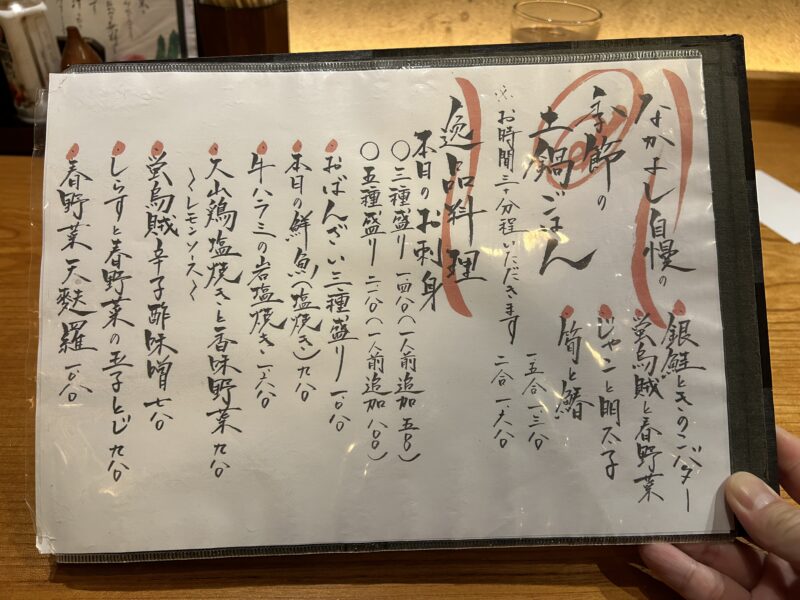 なかよし自慢の
季節の
土鍋ごはん
※お時間三十分程いただきます
銀鮭ときのこバター
蛍烏賊と春野菜
じゃこと明太子
筍と鰆
一.五合 一、三〇
二合 一、六八〇
逸品料理
本日のお刺身
〇三種盛り 一四八〇(一人前追加 五八〇)
〇五種盛り 二二八〇(一人前追加 八八〇)
おばんざい三種盛り 一、〇八〇
本日の鮮魚(塩焼き) 九八〇
牛ハラミの岩塩焼き 一、六八〇
大山鶏塩焼きと香味野菜 九八〇
〜レモンソース〜
蛍烏賊辛子酢味噌 七八〇
しらすと春野菜の玉子とじ 九八〇
春野菜天麩羅 一、〇八〇